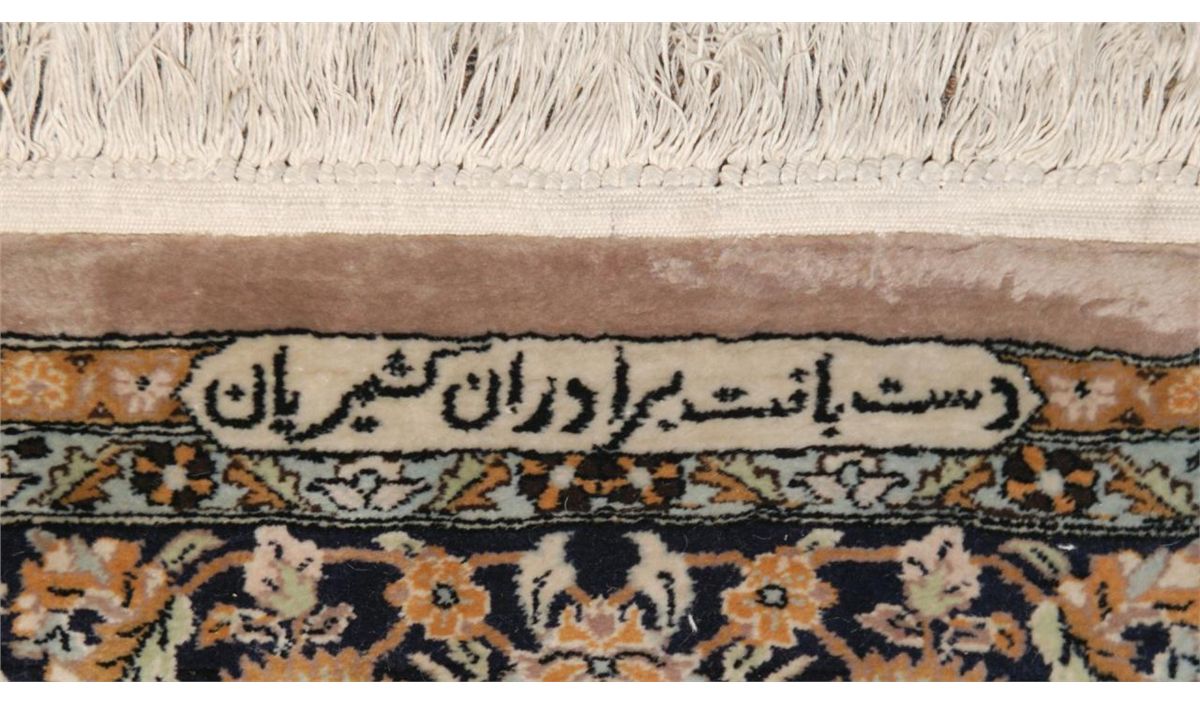 دست بافت برادران کثیریان